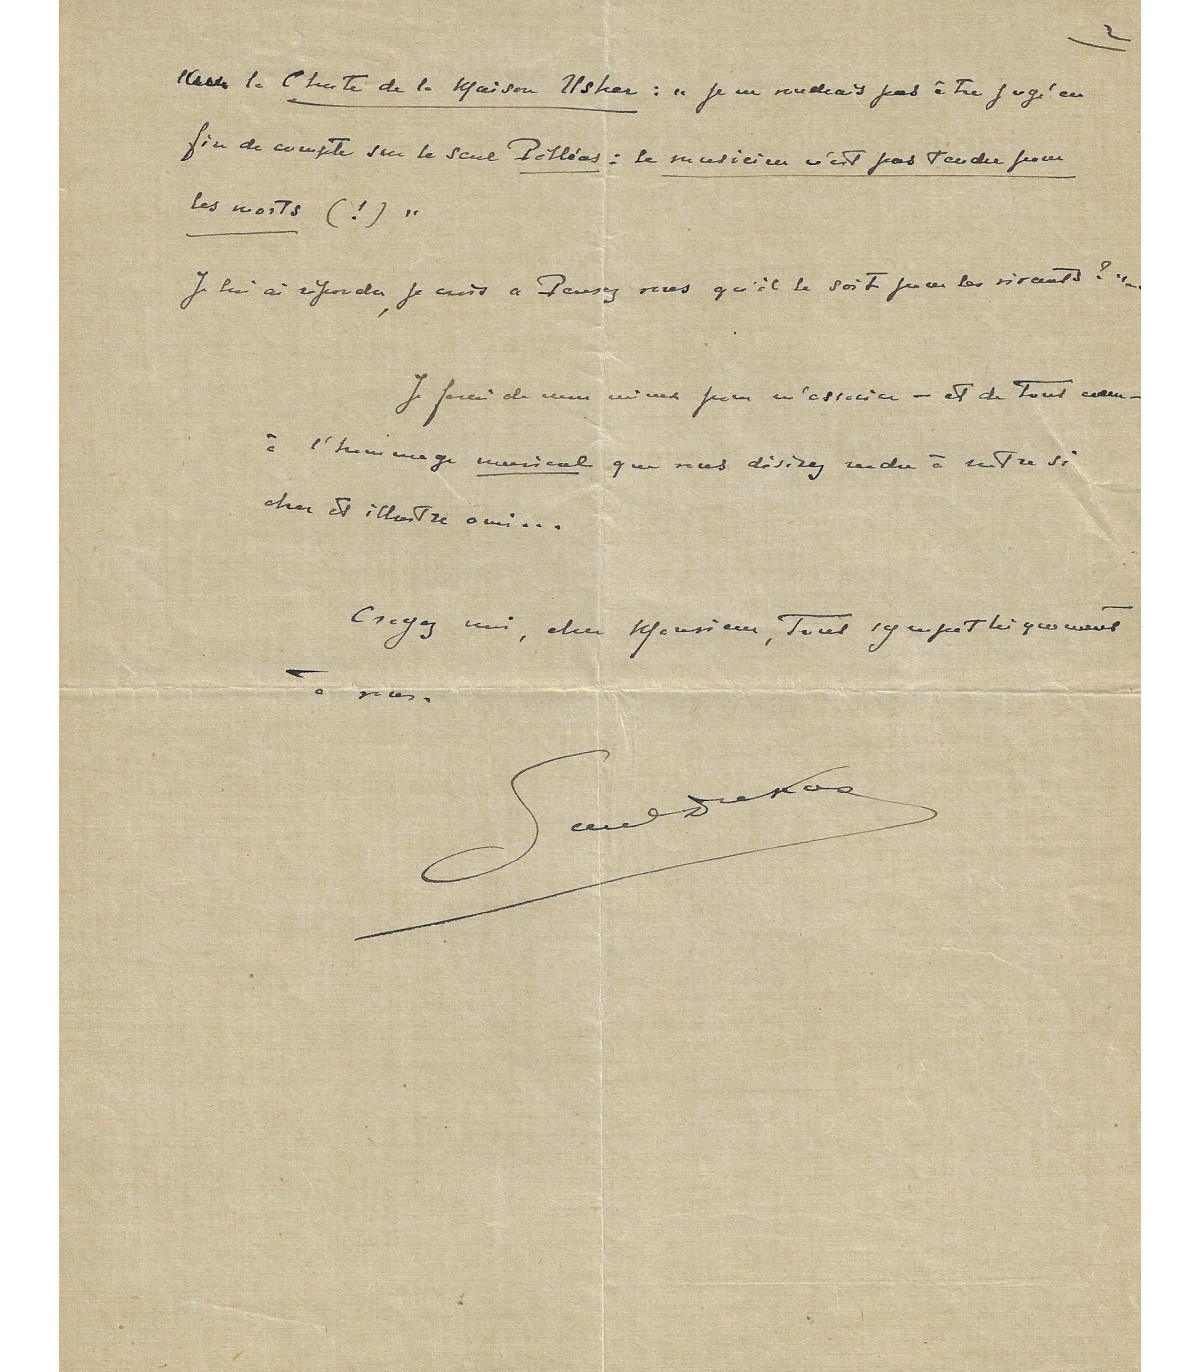 2
la Chute de la Maison Usher : " je ne voudrais pas être jugé en
fin de compte sur le seul Pelléas : le musicien n'est pas tendre pour
les morts (!) "
Je lui ai répondu, je crois " Pensez vous qu'il le soit pour les vivants ? "...
Je ferai de mon mieux pour m'associer — et de tout cœur —
à l'hommage musical que vous désirez rendre à notre si
cher et illustre ami...
Croyez moi, cher Monsieur, tout sympathiquement
à vous.
Paul Dukas